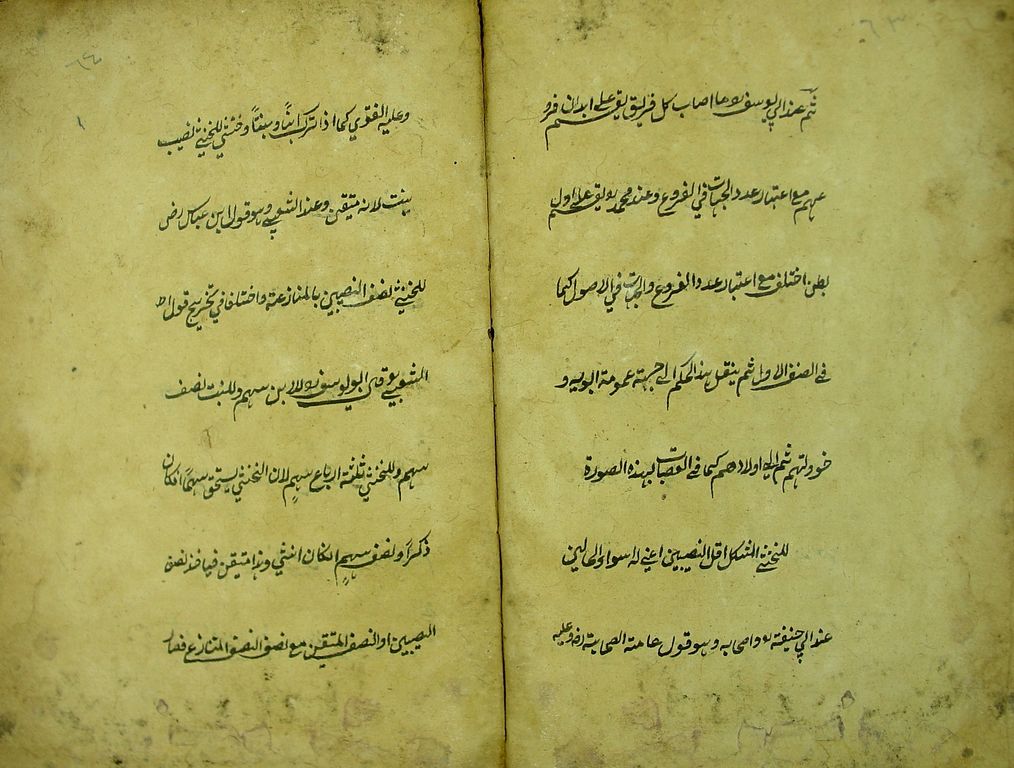 ٦٣
ثم عند ابي يوسف رح ما اصاب كل فريق يقسم على ابدان فرو
عهم مع اعتبار عدد الجهات في الفروع وعند محمد رح يقسم على اول
بطن اختلف مع اعتبار عدد الفروع والجهات في الاصول كما
في الصنف الاول ثم ينقل هذا الحكم الى جهة عمومة ابويه و
خؤولتهم ثم الى اولادهم كما في العصبات بهذه الصورة
للخنثى المشكل اقل النصيبين اعني له اسوأ الحالين
عند ابي حنيفة رح واصحابه وهو قول عامة الصحابة رض وعليه
٦٤
وعليه الفتوى كما اذا ترك ابنًا وبنتًا وخنثى للخنثى نصيب
بنت لانه متيقن وعند الشعبي وهو قول ابن عباس رض
للخنثى نصف النصيبين بالمنازعة واختلفا في تخريج قول
الشعبي قال ابو يوسف رح للابن سهم وللبنت نصف
سهم وللخنثى ثلثة ارباع سهم لان الخنثى يستحق سهمًا ان كان
ذكرًا ونصف سهم ان كان انثى وهذا متيقن فياخذ نصف
النصيبين او النصف المتيقن مع نصف النصف المتنازع فصار